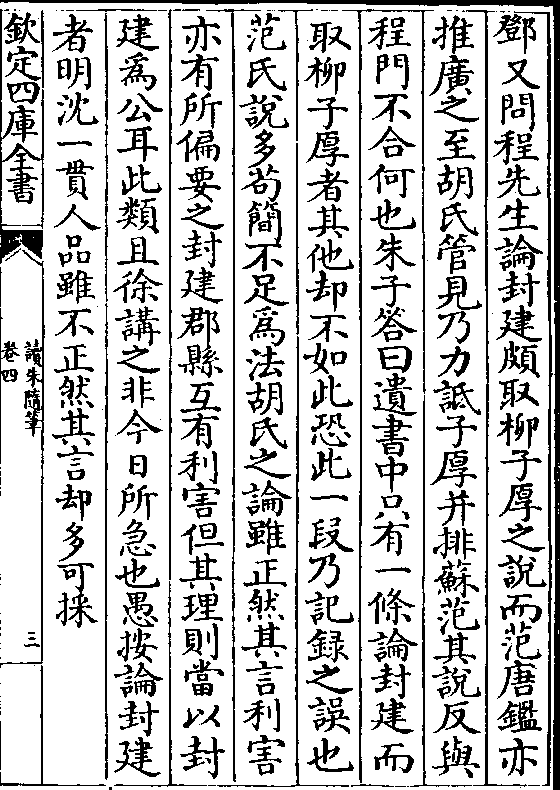 鄧又問程先生論封建頗取柳子厚之說而范唐鑑亦
推廣之至胡氏管見乃力詆子厚并排蘇范其說反與
程門不合何也朱子答曰遺書中只有一條論封建而
取柳子厚者其他却不如此恐此一段乃記録之誤也
范氏說多苟簡不足爲法胡氏之論雖正然其言利害
亦有所偏要之封建郡縣互有利害但其理則當以封
建爲公耳此類且徐講之非今日所急也愚按論封建
者明沈一貫人品雖不正然其言却多可採
欽定四庫全書
讀朱隨筆
卷四
三